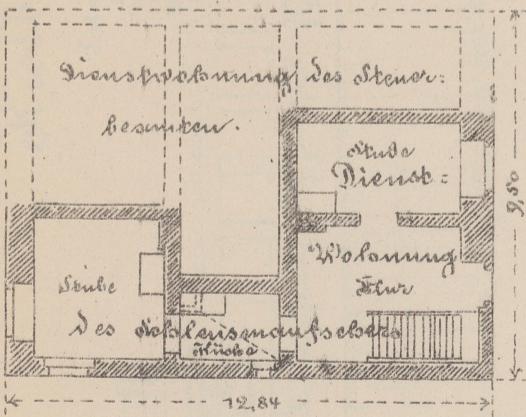 Dienstwohnung des Steuer=
beamten.
Stube
Dienst=
Wohnung
Flur
Stube
des Schleusenaufsehers
Küche
9,50
12,84